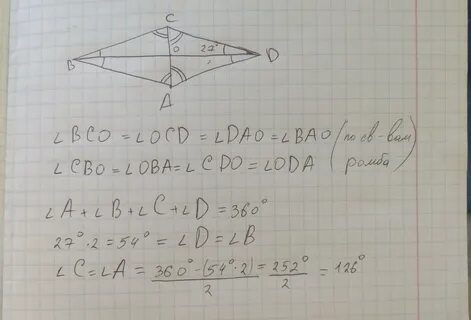 C
O
27°
B
D
A
∠BCO = ∠OCD = ∠DAO = ∠BAO (по св-вам
∠CBO = ∠OBA = ∠CDO = ∠ODA ромба)
∠A + ∠B + ∠C + ∠D = 360°
27°·2 = 54° = ∠D = ∠B
∠C = ∠A = 360° - (54°·2) / 2 = 252° / 2 = 126°